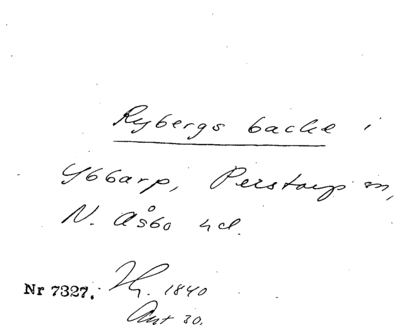 Rybergs backe i
Ybbarp, Perstorp sn,
N. Åsbo hd.
Nr 7327. Hg. 1840
Ant 30.